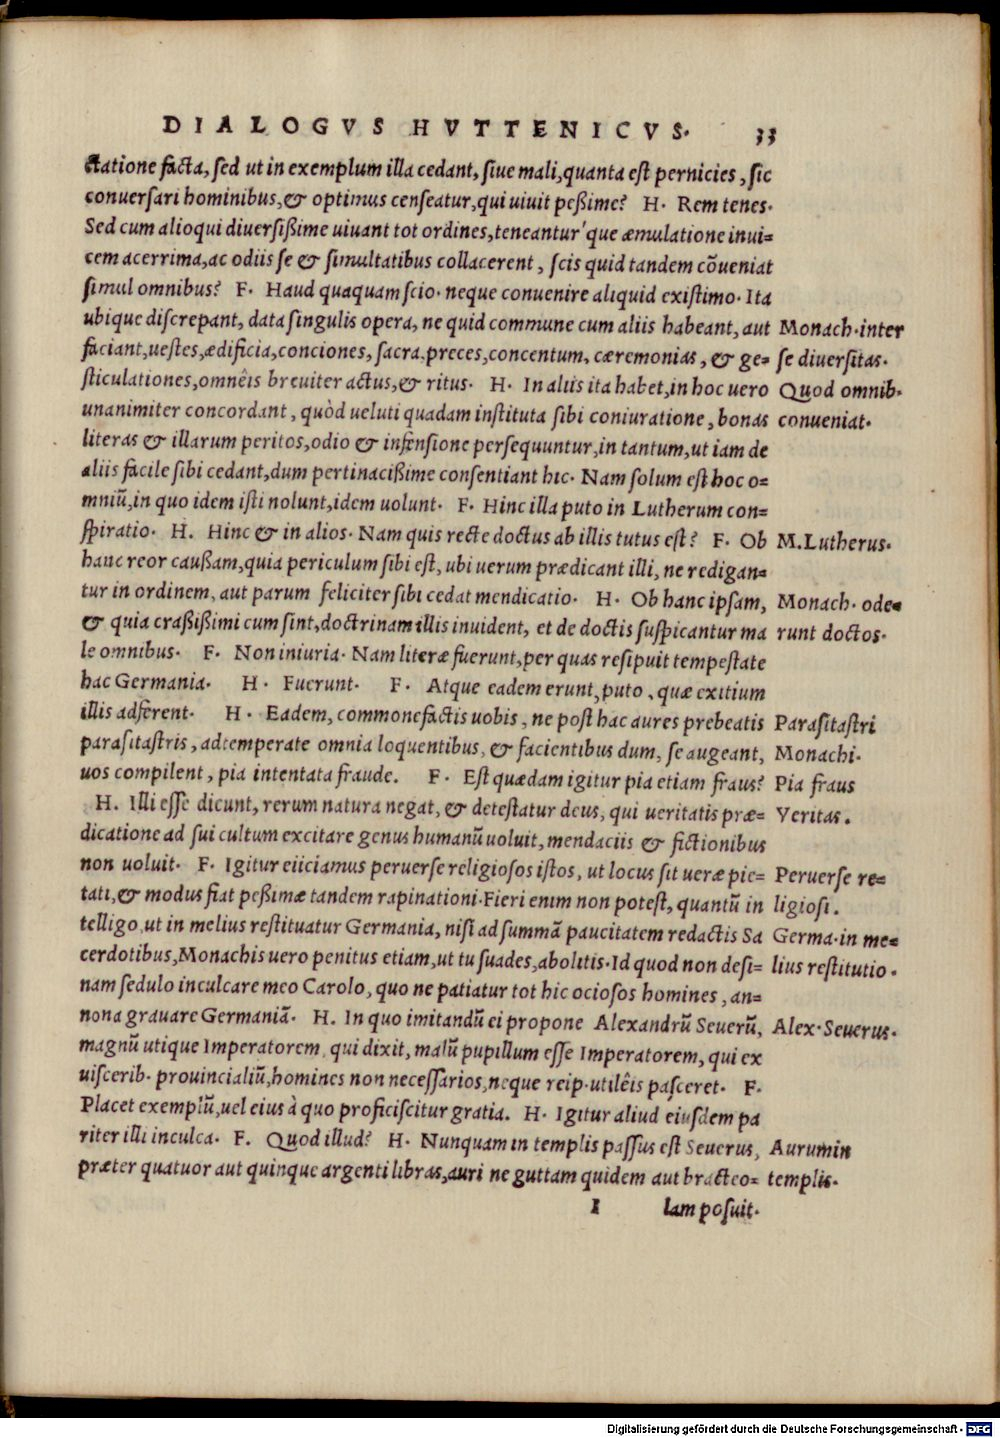 DIALOGVS HVTTENICVS. 33
ctatione facta, sed ut in exemplum illa cedant, siue mali, quanta est pernicies, sic
conuersari hominibus, & optimus censeatur, qui uiuit peßime? H. Rem tenes.
Sed cum alioqui diuersißime uiuant tot ordines, teneantur'que æmulatione inui=
cem acerrima, ac odiis se & simultatibus collacerent, scis quid tandem cōueniat
simul omnibus? F. Haud quaquam scio. neque conuenire aliquid existimo. Ita
ubique discrepant, data singulis opera, ne quid commune cum aliis habeant, aut Monach. inter
faciant, uestes, ædificia, conciones, sacra, preces, concentum, cæremonias, & ge= se diuersitas.
sticulationes, omnêis breuiter actus, & ritus. H. In aliis ita habet, in hoc uero Quod omnib.
unanimiter concordant, quòd ueluti quadam instituta sibi coniuratione, bonas conueniat.
literas & illarum peritos, odio & infensione persequuntur, in tantum, ut iam de
aliis facile sibi cedant, dum pertinacißime consentiant hic. Nam solum est hoc o=
mniū, in quo idem isti nolunt, idem uolunt. F. Hinc illa puto in Lutherum con=
spiratio. H. Hinc & in alios. Nam quis recte doctus ab illis tutus est? F. Ob M. Lutherus.
hanc reor caußam, quia periculum sibi est, ubi uerum prædicant illi, ne redigan=
tur in ordinem, aut parum feliciter sibi cedat mendicatio. H. Ob hanc ipsam, Monach. ode=
& quia craßißimi cum sint, doctrinam illis inuident, et de doctis suspicantur ma runt doctos.
le omnibus. F. Non iniuria. Nam literæ fuerunt, per quas resipuit tempestate
hac Germania. H. Fuerunt. F. Atque eadem erunt, puto, quæ exitium
illis adferent. H. Eadem, commonefactis uobis, ne post hac aures prebeatis Parasitastri
parasitastris, adtemperate omnia loquentibus, & facientibus dum, se augeant, Monachi.
uos compilent, pia intentata fraude. F. Est quædam igitur pia etiam fraus? Pia fraus
H. Illi esse dicunt, rerum natura negat, & detestatur deus, qui ueritatis præ= Veritas.
dicatione ad sui cultum excitare genus humanū uoluit, mendaciis & fictionibus
non uoluit. F. Igitur eiiciamus peruerse religiosos istos, ut locus sit ueræ pie= Peruerse re=
tati, & modus fiat peßimæ tandem rapinationi. Fieri enim non potest, quantū in ligiosi.
telligo, ut in melius restituatur Germania, nisi ad summā paucitatem redactis Sa Germa. in me=
cerdotibus, Monachis uero penitus etiam, ut tu suades, abolitis. Id quod non desi= lius restitutio.
nam sedulo inculcare meo Carolo, quo ne patiatur tot hic ociosos homines, an=
nona grauare Germaniā. H. In quo imitandū ei propone Alexandrū Seuerū, Alex. Seuerus.
magnū utique Imperatorem, qui dixit, malū pupillum esse Imperatorem, qui ex
uiscerib. prouincialiū, homines non necessarios, neque reip. utilêis pasceret. F.
Placet exemplū, uel eius à quo proficiscitur gratia. H. Igitur aliud eiusdem pa
riter illi inculca. F. Quod illud? H. Nunquam in templis passus est Seuerus, Aurum in
præter quatuor aut quinque argenti libras, auri ne guttam quidem aut bracteo= templis.
I lam posuit.
Digitalisierung gefördert durch die Deutsche Forschungsgemeinschaft - DFG